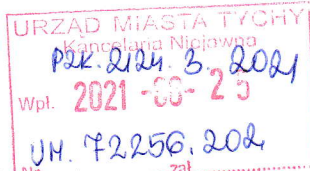 URZĄD MIASTA TYCHY
Kancelaria Niejawna
PZK. 2124. 3. 2021
Wpł. 2021 -06- 25
UM. 72256. 202
zał